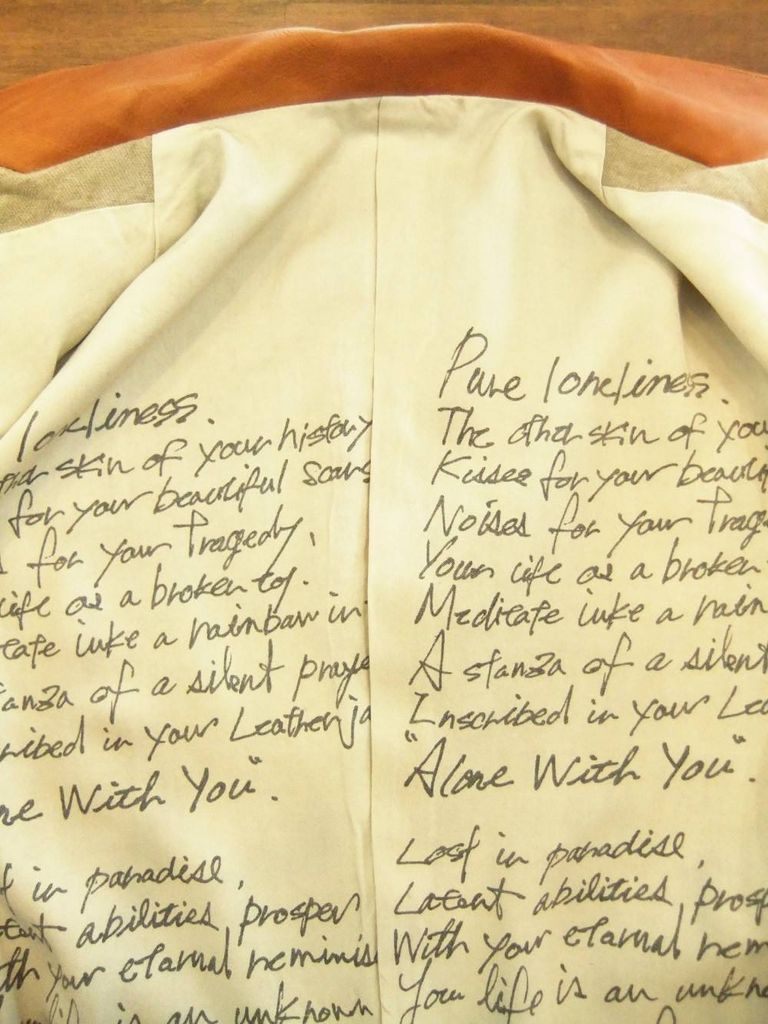 loneliness.
skin of your history
for your beautiful scars
for your Tragedy,
life as a broken toy.
a rainbow in
a silent
in your Leather ja
With You".
in paradise,
abilities prosper
your eternal reminis
life is an unknown
Pure loneliness.
The other skin of you
Kisses for your beautif
Noises for your Trage
Your life as a broken
Meditate like a rain
A stanza of a silent
Inscribed in your Lea
"Alone With You".
Lost in paradise,
Latent abilities prosp
With your eternal rem
Your life is an unkno